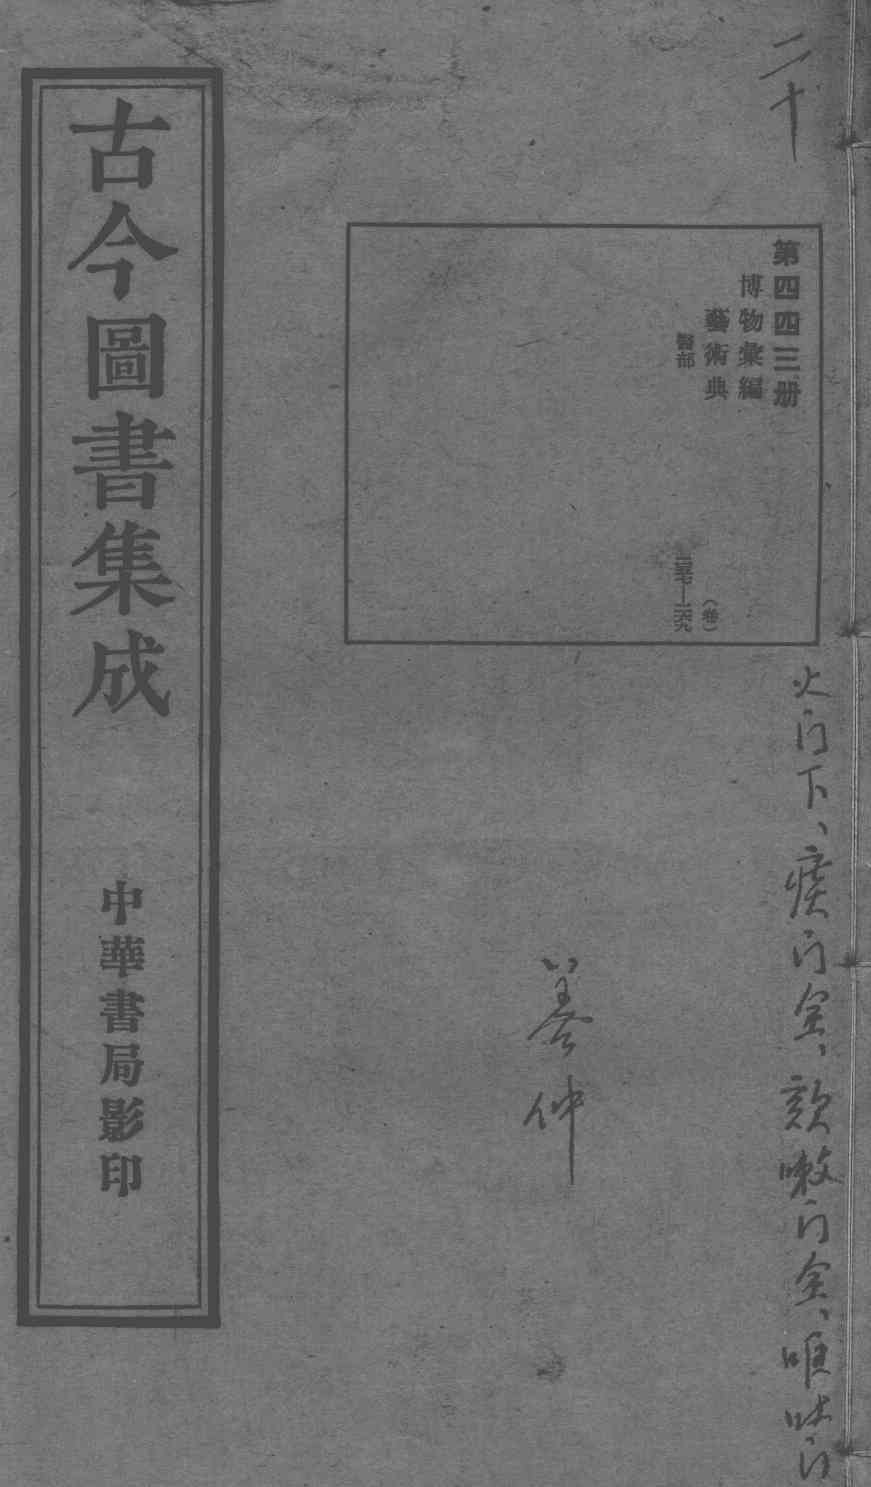 二十
第四四三册
博物彙編
藝術典
醫部
(卷)
二五七—二六九
火门下、痰门全、欬嗽门全、嘔吐门
仲
古今圖書集成
中華書局影印